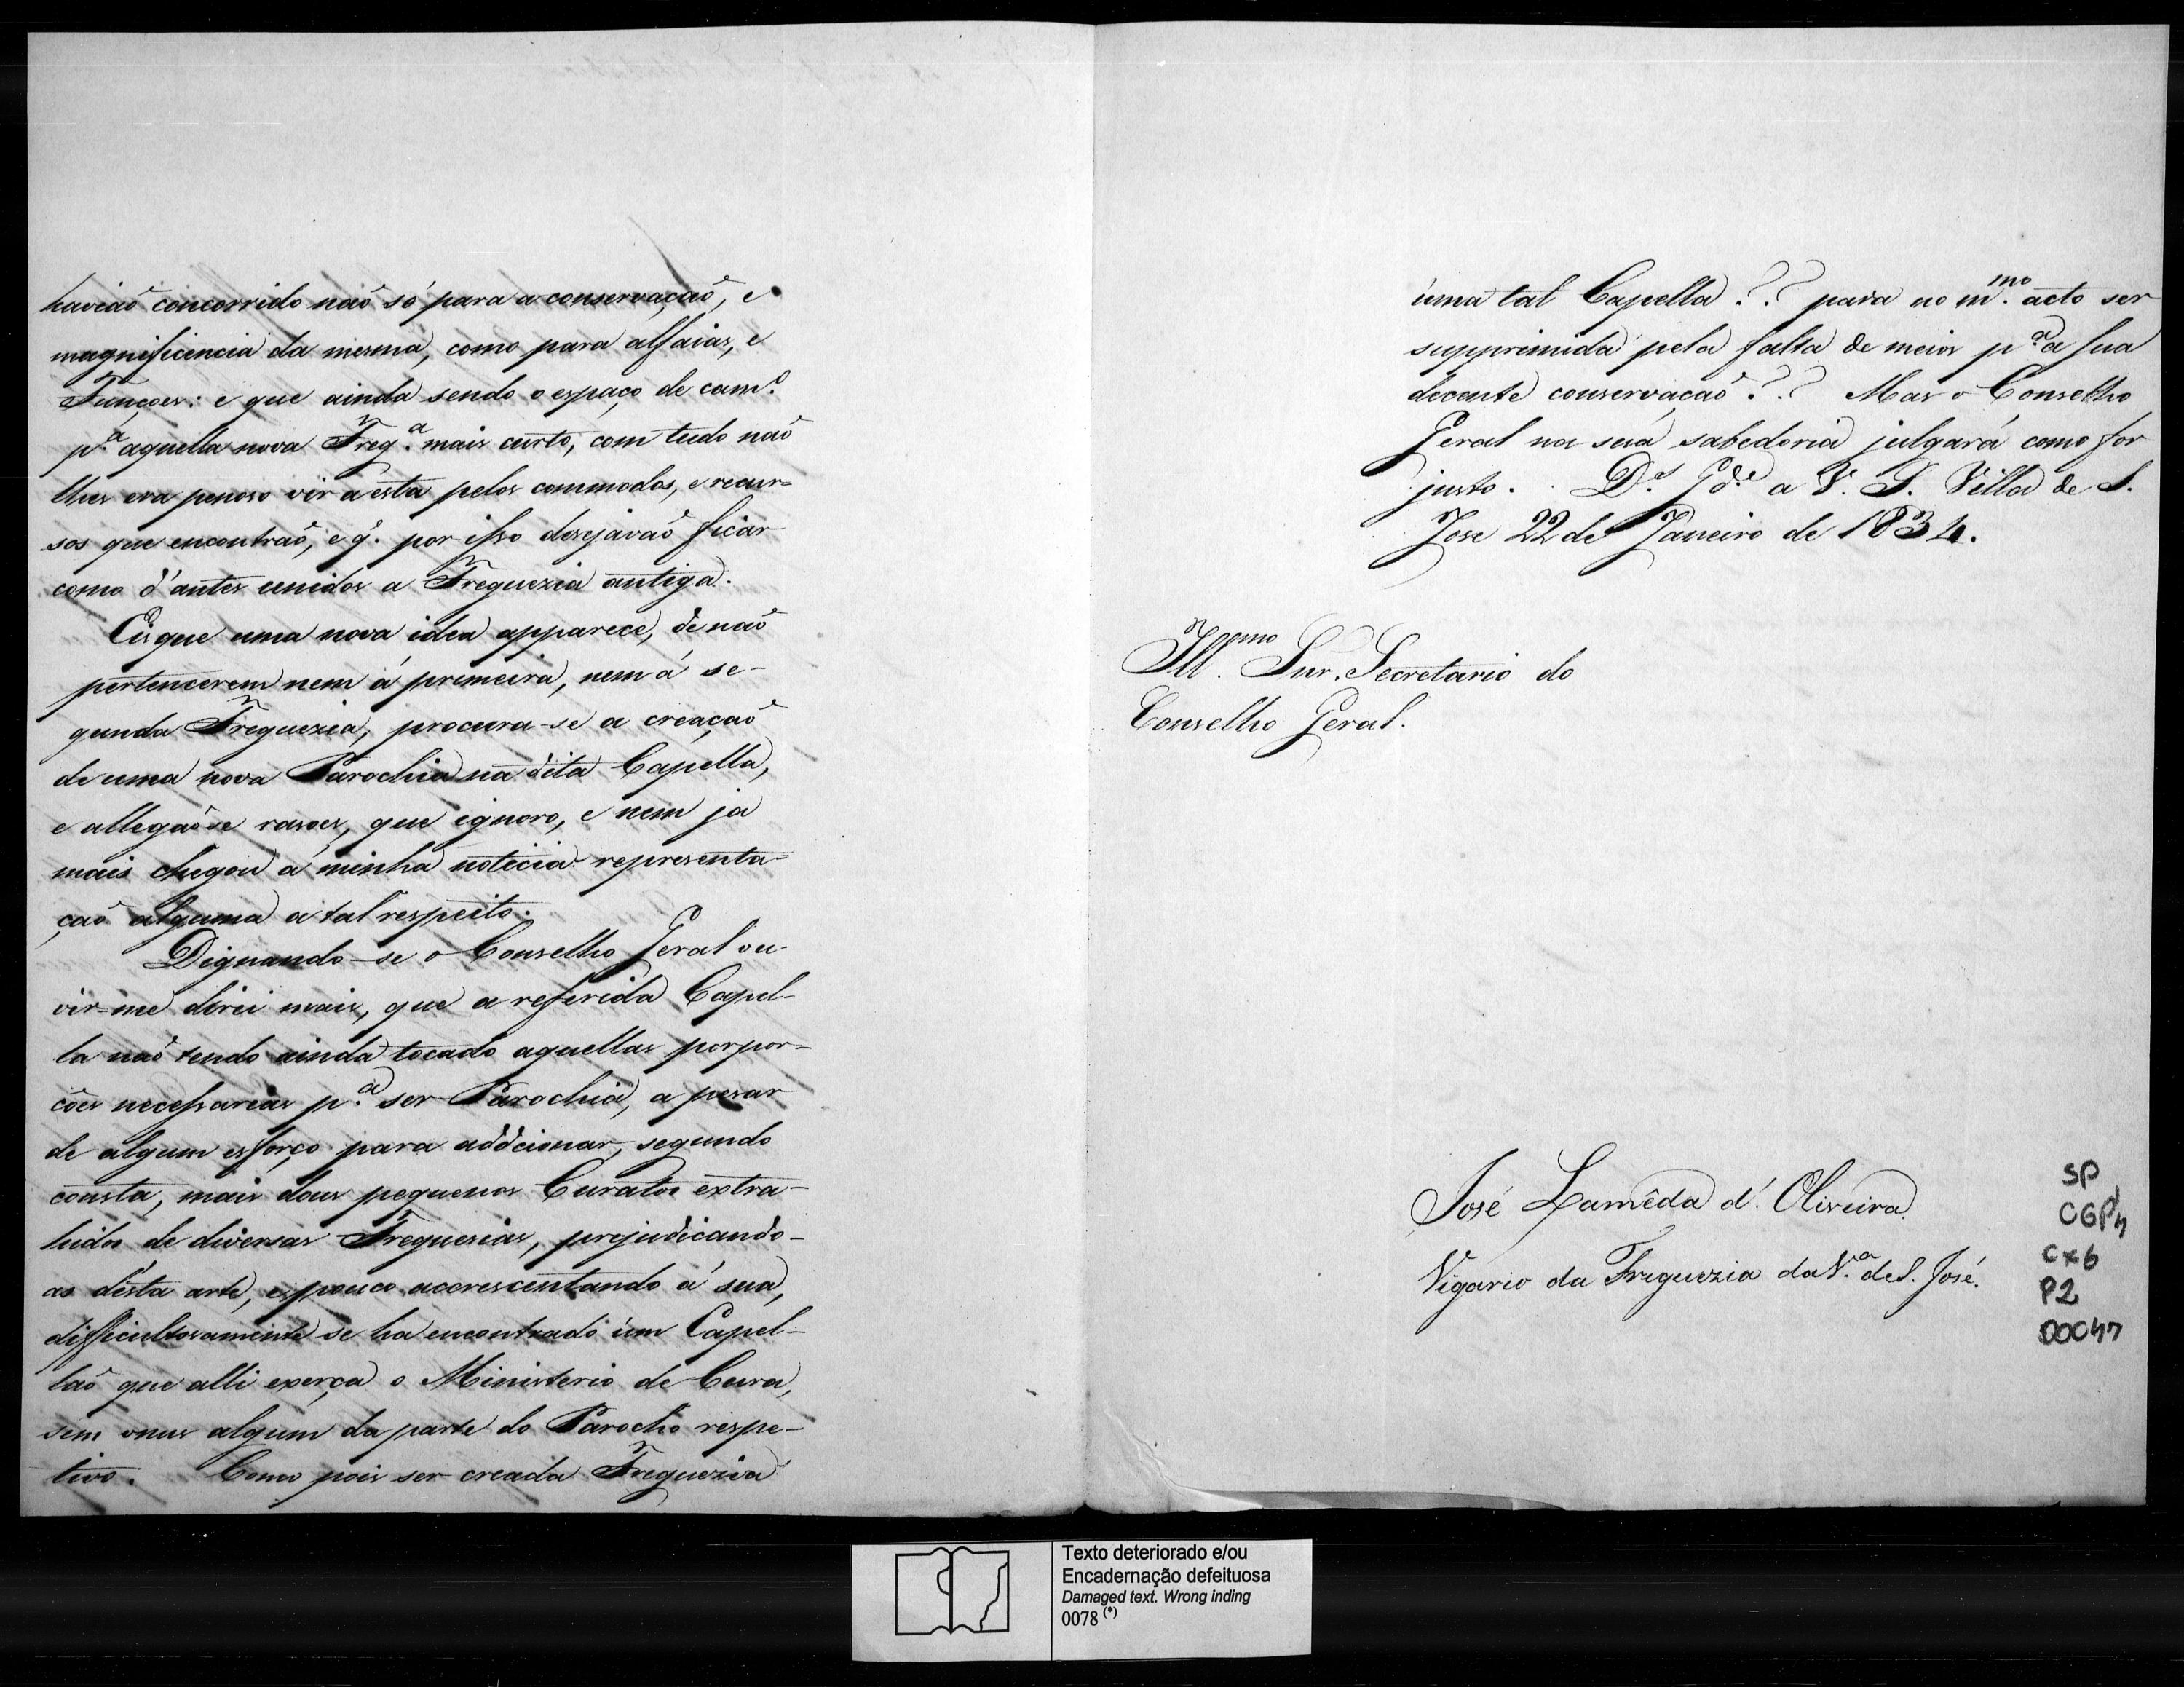 haviaõ concorrido naõ só para a conservaçaõ, e
magnificencia da mesma, como para alfaias, e
Funçoes: e que ainda sendo o espaço de cam.º
p.ª aquella nova Freg.ª mais curto, com tudo naõ
lhes era penoso vir a esta pelos commodos, e recur-
sos que encontraõ, e q̃. por isso desejavaõ ficar
como d'antes unidos a Freguezia antiga.
Eis que uma nova idea apparece, de naõ
pertencerem nem á primeira, nem á se-
gunda Freguezia, procura-se a creaçaõ
de uma nova Parochia na dita Capella,
e allegaõ-se rasoes, que ignoro, e nem ja
mais chegou á minha noticia representa-
çaõ alguma a tal respeito.
Dignando-se o Conselho Geral ou-
vir-me direi mais, que a referida Capel-
la naõ tendo ainda tocado aquellas porpor-
cões necessarias p.ª ser Parochia, a pesar
de algum esforço para addcionar, segundo
consta, mais dous pequenos Curatos extra-
hidos de diversas Freguesias, prejudicando-
as désta arte, e pouco accrescentando á sua,
difficultosamente se ha encontrado um Capel-
laõ que alli exerça o Ministerio de Cura,
sem onus algum da parte do Parocho respe-
tivo. Como pois ser creada Freguezia
uma tal Capella?? para no m.mo acto ser
supprimida pela falta de meios p.ª a sua
decente conservaçaõ?? Mas o Conselho
Geral na sua sabedoria julgará como for
justo. D.s G.de a V. S. Villa de S.
Jose 22 de Janeiro de 1834.
Ill.mo Snr. Secretario do
Conselho Geral.
José Lamêda d'Oliveira
Vigario da Freguezia da V.ª de S. José.
SP
CGP1
Cx6
P2
DOC
Texto deteriorado e/ou
Encadernação defeituosa
Damaged text. Wrong inding
0078 (*)